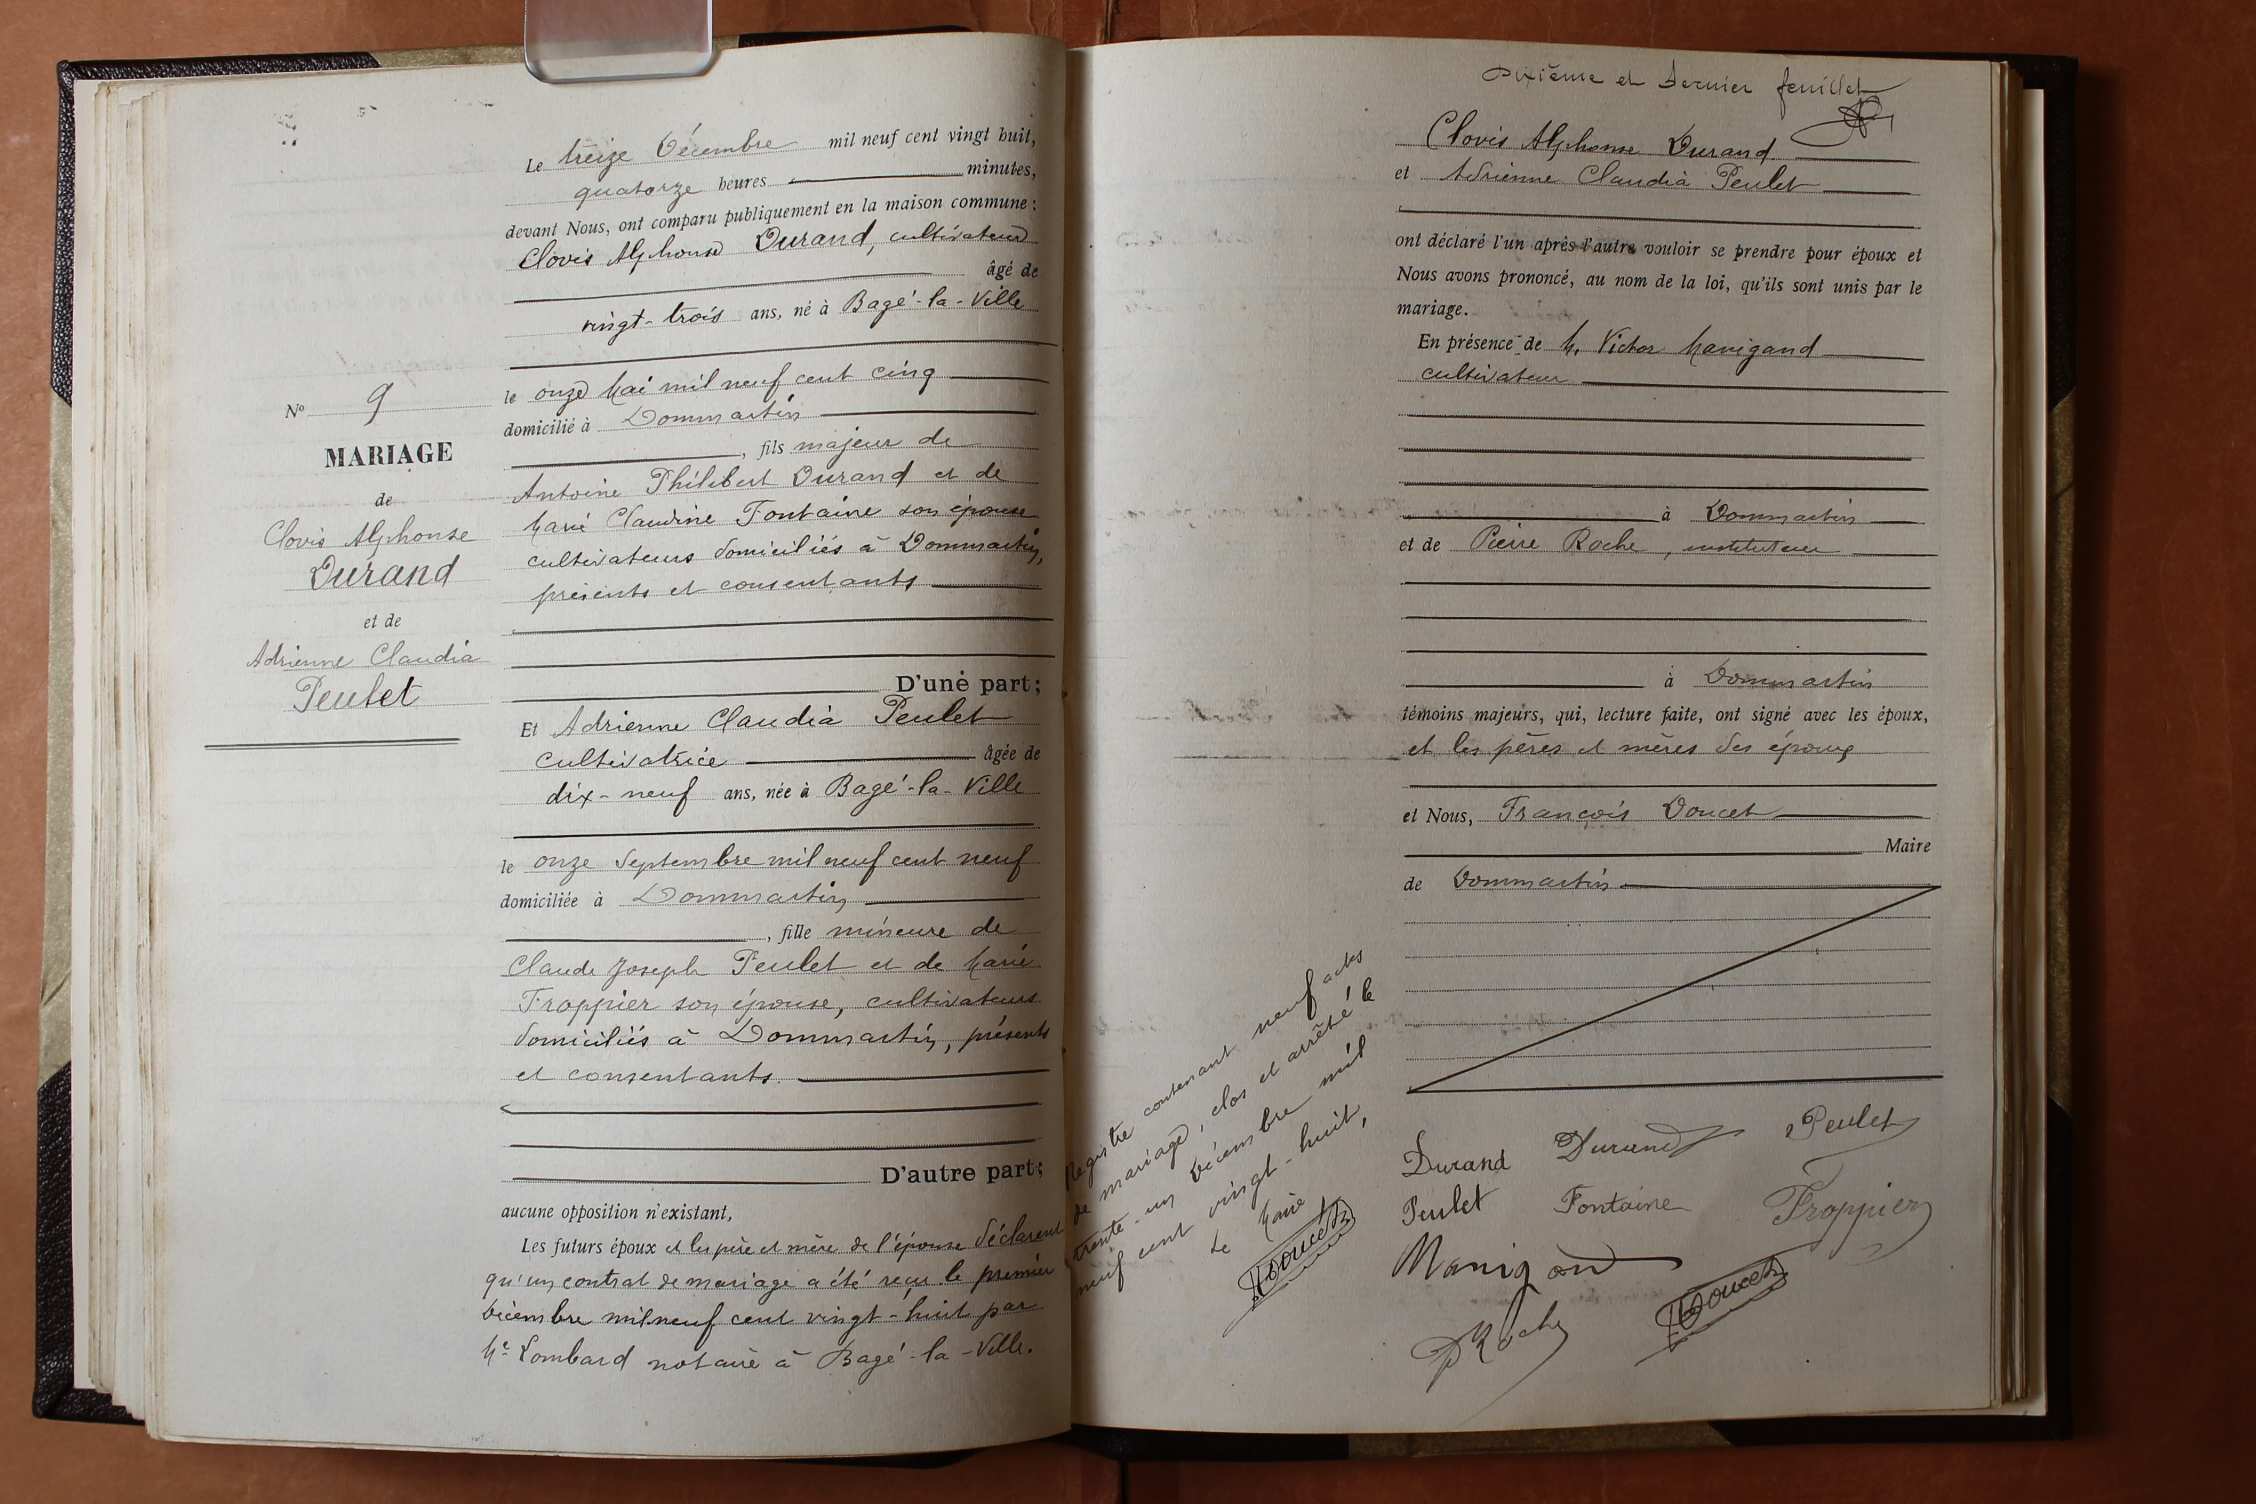 Le treize Décembre mil neuf cent vingt huit,
quatorze heures minutes,
devant Nous, ont comparu publiquement en la maison commune :
Clovis Alphonse Durand, cultivateur
âgé de
vingt-trois ans, né à Bagé-la-Ville
le onze Mai mil neuf cent cinq
domicilié à Dommartin
, fils majeur de
Antoine Philibert Durand et de
Marie Claudine Fontaine son épouse
cultivateurs domiciliés à Dommartin,
présents et consentants
D'une part;
Et Adrienne Claudia Peulet
cultivatrice âgée de
dix-neuf ans, née à Bagé-la-Ville
le onze Septembre mil neuf cent neuf
domiciliée à Dommartin
, fille mineure de
Claude Joseph Peulet et de Marie
Froppier son épouse, cultivateurs
domiciliés à Dommartin, présents
et consentants.
D'autre part;
aucune opposition n'existant,
Les futurs époux et les père et mère de l'épouse déclarent
qu'un contrat de mariage a été reçu le premier
Décembre mil neuf cent vingt-huit par
Me Lombard notaire à Bagé-la-Ville.
No 9
MARIAGE
de
Clovis Alphonse
Durand
et de
Adrienne Claudia
Peulet
et dernier feuillet
Clovis Alphonse Durand
et Adrienne Claudia Peulet
ont déclaré l'un après l'autre vouloir se prendre pour époux et
Nous avons prononcé, au nom de la loi, qu'ils sont unis par le
mariage.
En présence de M. Victor Manigand
cultivateur
à Dommartin
et de Pierre Roche, instituteur
à Dommartin
témoins majeurs, qui, lecture faite, ont signé avec les époux,
et les pères et mères des époux
et Nous, François Doucet
Maire
de Dommartin
Registre contenant neuf actes
de mariage, clos et arrêté le
trente-un Décembre mil
neuf cent vingt-huit,
Le Maire
Doucet
Durand Durand Peulet
Peulet Fontaine Froppier
Manigand
Doucet
P Roche